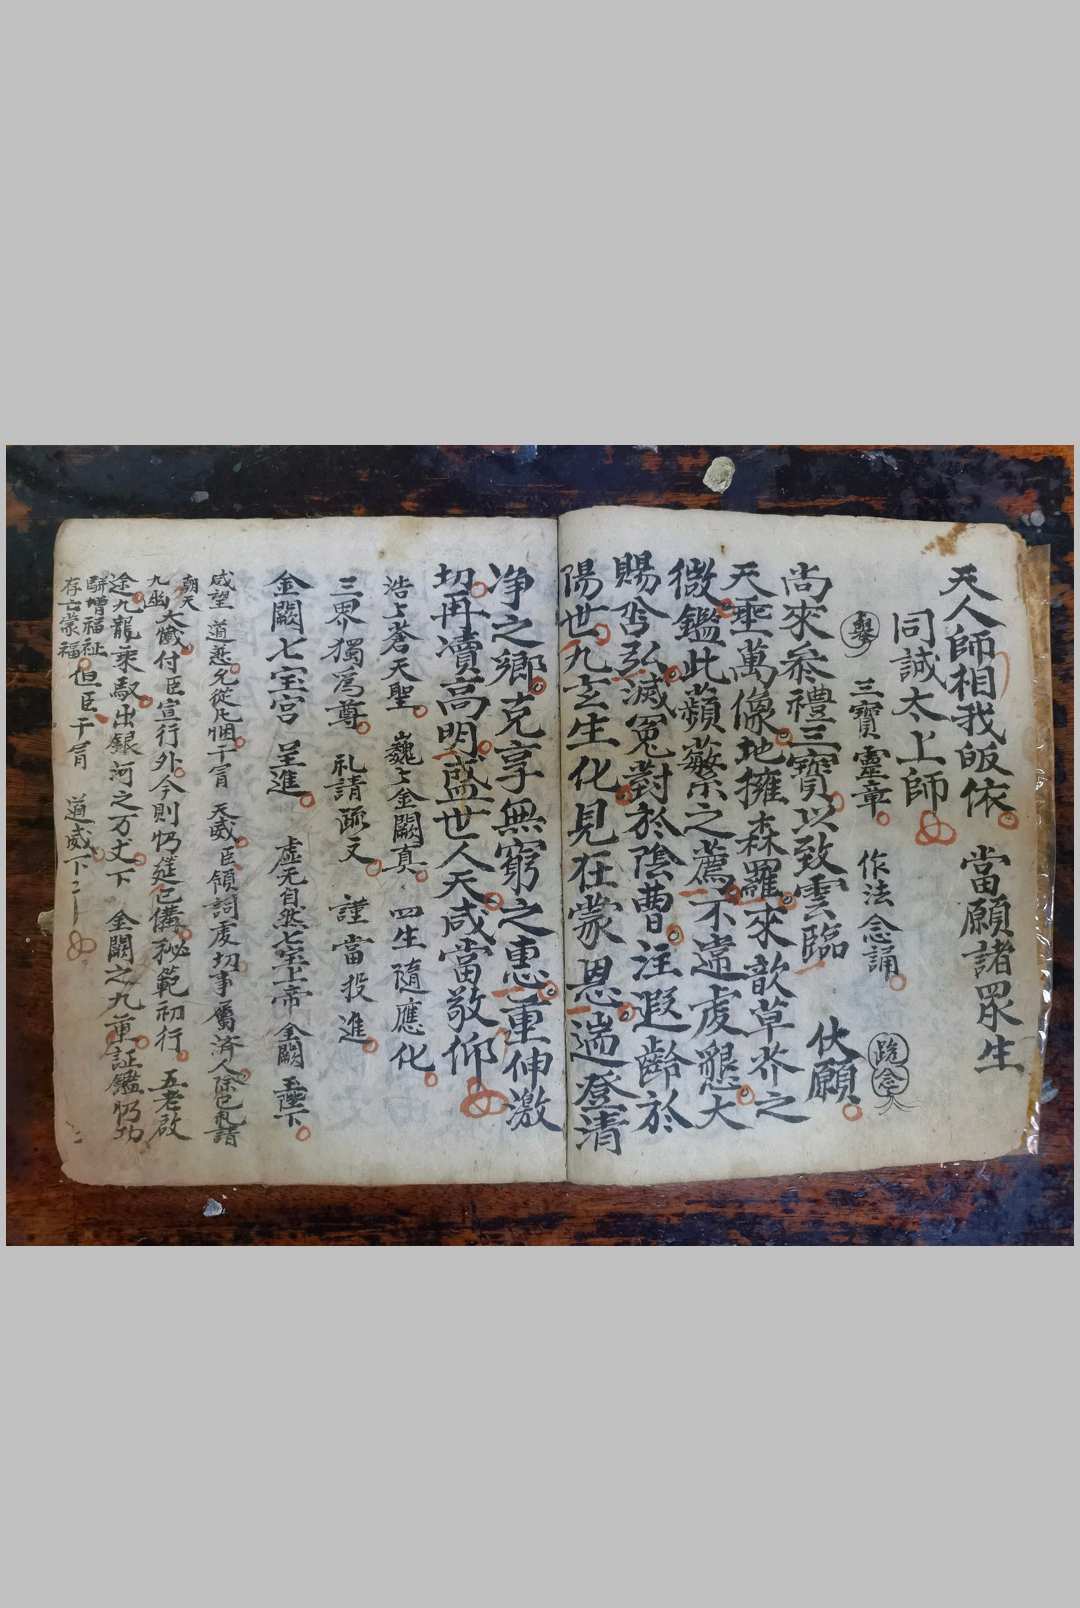 天人師相我皈依 當願諸眾生
同誠太上師
三寶靈章 作法念誦 跪念
尚來參禮三寶以致雲臨 伏願
天垂萬像地擁森羅來歆草芥之
微鑑此蘋蘩之薦不嵩虔懇大
賜啓弘滅冤對於陰曹注遐齡於
陽世九玄生化見在蒙恩遄登清
净之鄉克享無窮之惠重伸激
切再瀆高明盛世人天咸當敬仰
浩上蒼天聖 巍上金闕真 四生隨應化
三界獨爲尊 礼請疏文 謹當投進
金闕七宝宮 呈進 虛无自然七宝上帝金闕玉陛下
咸望 道慈允從凡悃干冒 天威臣領詞虔切事屬済人除已礼請
朝天
九幽大懺付臣宣行外今則仍筵已僃秘範初行 五老啟
途九龍乘馭出銀河之万丈下 金闕之九重証鑑仍功
駢增福祉
存亡蒙福但臣干冒 道威下二